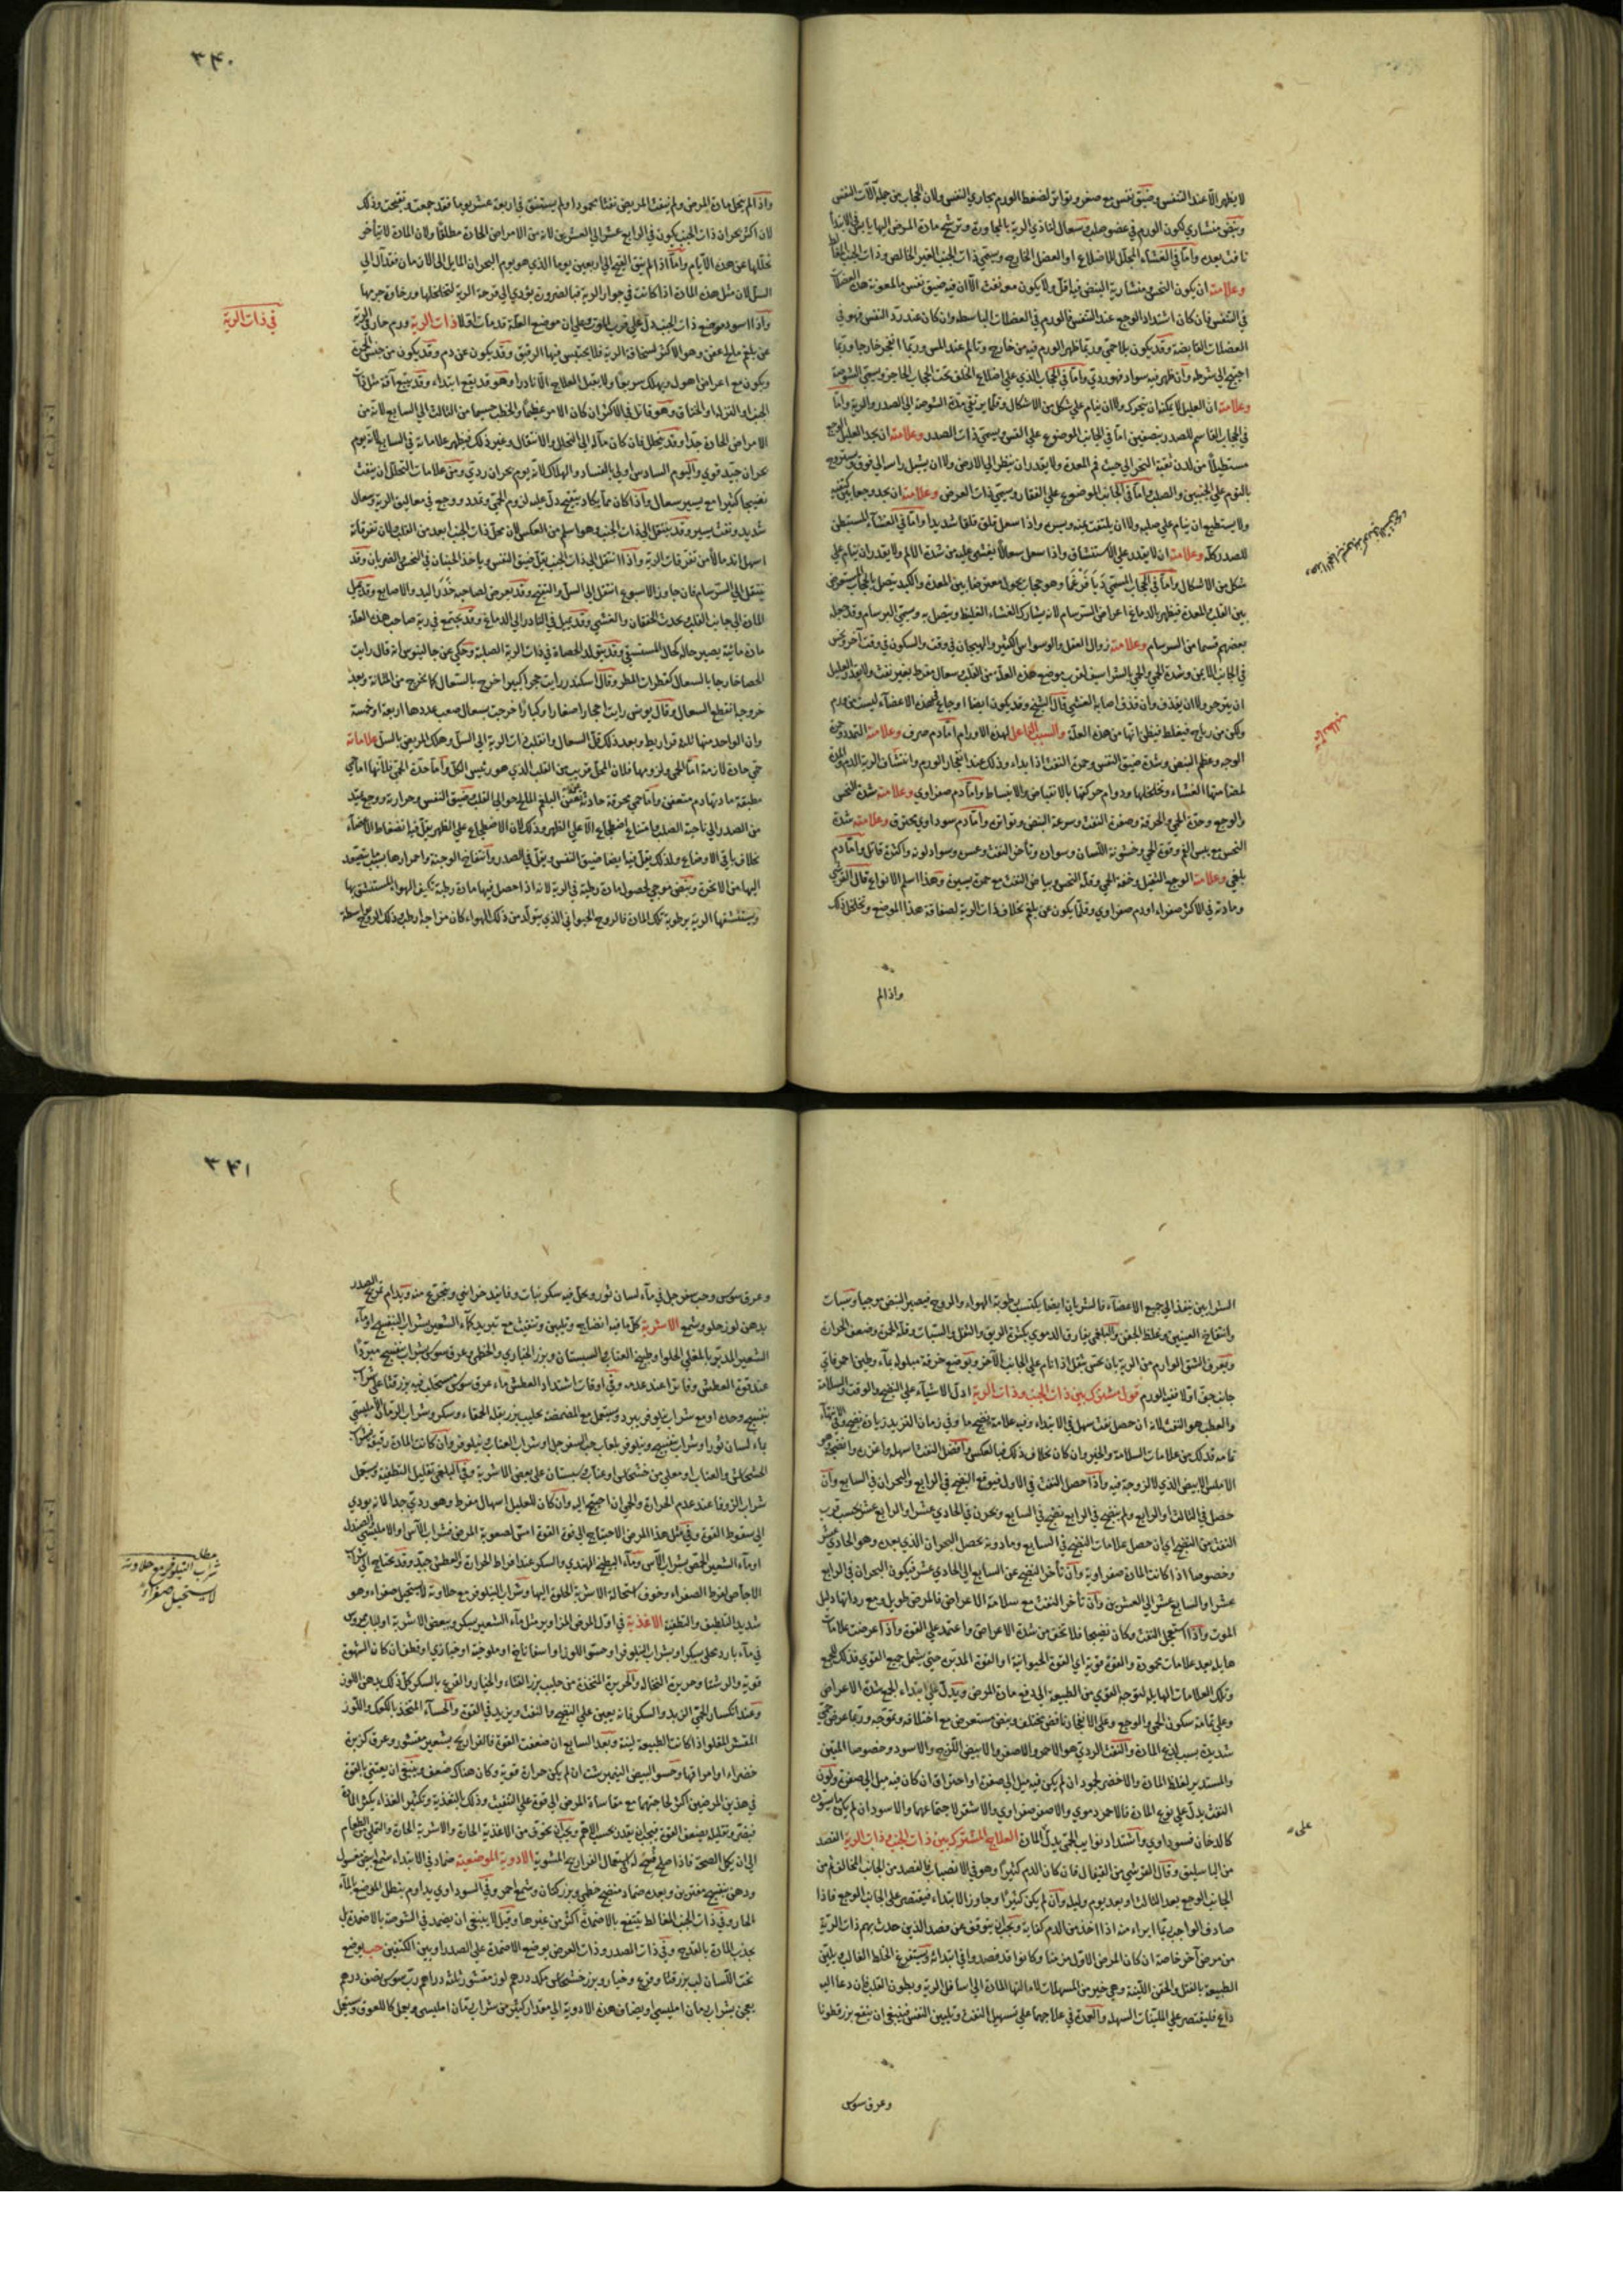 لا يظهر الا عند التنفس وضيق نفس مع صغر وتواتر لضغط الورم مجاري النفس ولان الحجاب من جملة آلات النفس
ونبض منشاري لكون الورم في عضو صلب وسعال لتاذي الرية بالمجاورة وترشح مادة المرض اليها يابس في الابتدا
نافث بعده واما في الغشاء المجلل للاضلاع او العضل الخارج ويسمى ذات الجنب الغير الخالص وذات الجنب
وعلامته ان يكون النخس ومنشارية النبض فيه اقل ولا يكون معه نفث الا ان فيه ضيق نفس بالمعونة هذه العضلات
في التنفس فان كان اشتداد الوجع عند التنفس فالورم في العضلات الباسطة وان كان عند رد النفس فهو في
العضلات القابضة وقد يكون بلا حمى وربما ظهر الورم فيه من خارج وتالم عند المس وربما انفجر خارجا وربما
احتيج الى شرطه وان ظهر فيه سواد فهو ردي واما في الحجاب الذي على اضلاع الخلف تحت الحجاب الحاجز ويسمى الشوصة
وعلامته ان العليل لا يمكنه ان يتحرك ولا ان ينام على شكل من الاشكال وقلما يرتقي مدة الشوصة الى الصدر والرية واما
في الحجاب القاسم للصدر بنصفين اما في الجانب الموضوع على القس ويسمى ذات الصدر وعلامته ان يجد العليل الوجع
مستطيلا من لدن نقبة النحر الى حيث فم المعدة ولا يقدر ان ينظر الى الارض ولا ان يشيل راسه الى فوق ويستروح
بالنوم على الجنبين والصدر واما في الجانب الموضوع على الفقار ويسمى ذات العرض وعلامته ان يجد وجعا بين كتفيه
ولا يستطيع ان ينام على صلبه ولا ان يلتفت يمنة ويسرة واذا سعل قلق قلقا شديدا واما في الغشاء المستبطن
للصدر كله وعلامته ان لا يقدر على الاستنشاق واذا سعل سعالا يغشى عليه من شدة الالم ولا يقدر ان ينام على
شكل من الاشكال واما في الحجاب المسمى ديافرغما وهو حجاب يحول معترضا بين المعدة والكبد يتصل بالحجاب المستعرض
بين القلب والمعدة فيظهر بالدماغ اعراض السرسام لانه يشاركه الغشاء الغليظ ويتصل به ويسمى البرسام وقد جعله
بعضهم قسما من السرسام وعلامته زوال العقل والوسواس الكثير والهيجان في وقت والسكون في وقت آخر ونخس
في الجانب الايمن وشدة الحمى والحمى الشراسيف لقرب موضع هذه العلة من القلب وسعال مفرط بغير نفث ولا يقدر العليل
ان يتزحر ولا ان يقذف وان قذف اصابه الغشي قال الشيخ وقد يكون ايضا اوجاع في هذه الاعضاء ليست من ورم
ولكن من رياح فيغلط فيظن انها من هذه العلة والسبب الفاعل لهذه الاورام اما دم صرف وعلامته التمدد وحمرة
الوجه وعظم النبض وشدة ضيق النفس وحمرة النفث اذا بداء وذلك عند انفجار الورم وانتشاف الرية الدم والمدة
لمضامتها الغشاء وتخلخلها ودوام حركتها بالانقباض والانبساط واما دم صفراوي وعلامته شدة النخس
والوجع وحدة الحمى والحرقة وصفرة النفث وسرعة النبض وتواتره واما دم سوداوي محترق وعلامته شدة
النخس مع يبس الفم وقوة الحمى وخشونة اللسان وسواده وتاخر النفث وعسره وسواد لونه واكثره قاتل واما دم
بلغمي وعلامته الوجع الثقيل وخفة الحمى وقلة النخس وبياض النفث مع حمرة يسيرة وهذا اسلم الانواع قال القرشي
ومادته في الاكثر صفراء او دم صفراوي وقلما يكون عن بلغم بخلاف ذات الرية لصفاقة هذا الموضع وتخلخل ذلك
واذا لم
٣٤٠
واذا لم ينحل مادة المرض ولم ينفث المريض نفثا محمودا ولم يستنق في اربعة عشر يوما فقد جمعت وتقيحت وذلك
لان اكثر بحران ذات الجنب يكون في الرابع عشر الى العشرين لانه من الامراض الحادة مطلقا ولان المادة لا يتاخر
تحللها عن هذه الايام واما اذا لم ينق القيح الى اربعين يوما الذي هو يوم البحران المايل الى الازمان فقد آل الى
السل لان مثل هذه المادة اذا كانت في جوار الرية فبالضرورة يؤدي الى قرحة الرية لتخلخلها ورخاوة جرمها
واذا اسود موضع ذات الجنب دل على قرب الموت وعلى ان موضع العلة قد مات اولا ذات الرية ورم حار في الرية
في ذات الرية
عن بلغم مالح عفن وهو الاكثر لسخافة الرية فلا يحتبس فيها الرقيق وقد يكون عن دم وقد يكون من جنس الحمرة
ويكون مع اعراض اهول ويهلك سريعا ولا يقبل العلاج الا نادرا وهو قد يقع ابتداء وقد يتبع آفة مثل ذات
الجنب او النزلة والخناق وهو قاتل في الاكثر ان كان الامر عظيما والخطب جسيما من الثالث الى السابع لانه من
الامراض الحادة جدا وقد يتحلل فان كان مآله الى التحلل والانتقال وغير ذلك فيظهر علاماته في السابع لانه يوم
بحران جيد قوي واليوم السادس اولى بالفساد والهلاك لانه يوم بحران ردي ومن علامات التحلل ان ينفث
نضيجا كثيرا مع يسير سعال واذا كان مما يكاد يتقيح دل عليه لزوم الحمى وتمدد ووجع في معاليق الرية وسعال
شديد ونفث يسير وقد ينتقل الى ذات الجنب وهو اسلم من العكس لان محل ذات الجنب ابعد من القلب ولان تفرقاته
اسهل اندمالا من تفرقات الرية واذا انتقل الى ذات الجنب يقل ضيق النفس وياخذ الجنبان في النخس والضربان وقد
ينتقل الى السرسام فان جاوز الاسبوع انتقل الى السل والتقيح وقد يعرض لصاحبه خدر اليد والاصابع وقد يميل
المادة الى جانب القلب يحدث الخفقان والغشي وقد يميل في النادر الى الدماغ وقد يجتمع في رية صاحب هذه العلة
مادة مائية يصير حاله كحال المستسقي وقد يتولد الحصاة في ذات الرية الصلبة وحكي عن جالينوس انه قال رايت
الحصا خارجا بالسعال كقطرات المطر وقال اسكندر رايت حجرا كبيرا خرج بالسعال كما يخرج من المثانة وبعد
خروجه انقطع السعال وقال بولس رايت احجارا صغارا وكبارا خرجت بسعال صعب عددها اربعة او خمسة
وان الواحد منها ثلثة قراريط وبعد ذلك قل السعال وانقلب ذات الرية الى السل وهلك المريض بالسل علاماته
حمى حادة لازمة اما الحمى ولزومها فلان المحل قريب من القلب الذي هو رئيس الكل واما حدة الحمى فلانها اما حمى
مطبقة مادتها دم متعفن واما حمى محرقة حادثة بتعفن البلغم المالح حوالي القلب وضيق النفس وحرارته ووجع يمتد
من الصدر الى ناحية الصلب وامتناع اضطجاع الا على الظهر وذلك لان الاضطجاع على الظهر يقل فيه انضغاط الاعضاء
بخلاف باقي الاوضاع ولذلك يقل فيها ايضا ضيق النفس وثقل في الصدر وانتفاخ الوجنة واحمرارها بسبب ما يتصعد
اليها من الابخرة ونبض موجي لحصول مادة رطبة في الرية لانه اذا حصل فيها مادة رطبة تكيف الهواء المستنشق بها
ويستنشقها الرية برطوبة تلك المادة فالروح الحيواني الذي يتولد من ذلك الهواء كان مزاجه رطبا وذلك الروح بواسطة
الشرايين ينفذ الى جميع الاعضاء فالشريان ايضا يكتسب رطوبة الهواء والروح فيصير النبض موجيا وسبات
وانتفاخ العينين وغلظ الجفن والبلغمي يفارق الدموي بكثرة الريق والثقل والسبات وقلة الحمرة وضعف الحرارة
ويعرف الشق الوارم من الرية بان يحس بثقل اذا نام على الجانب الآخر وتوضع خرقة مبلولة بماء وطين احمر فاي
جانب جف اولا ففيه الورم قول مشترك بين ذات الجنب وذات الرية ادل الاشياء على النضج والوقت والسلامة
والعطب هو النفث لانه ان حصل نفث سهل في الابتداء وفيه علامة نضج ما وفي زمان التزيد زيادة نضج وفي الانتهاء
تمامه فذلك من علامات السلامة والخير وان كان بخلاف ذلك فبالعكس وافضل النفث اسهله واغزره وانضجه وهو
الاملس الابيض الذي لا لزوجة فيه واذا حصل النفث في الاول فيتوقع النضج في الرابع والبحران في السابع وان
حصل في الثالث او الرابع ولم ينضج في الرابع نضج في السابع وبحرن في الحادي عشر او الرابع عشر بحسب قرب
النفث من النضج اي ان حصل علامات النضج في السابع وما دونه يحصل البحران الذي بعده وهو الحادي عشر
وخصوصا اذا كانت المادة صفراوية وان تاخر النضج عن السابع الى الحادي عشر فيكون البحران في الرابع
عشر او السابع عشر الى العشرين وان تاخر النفث مع سلامة الاعراض فالمرض طويل ومع ردائها دليل
الموت واذا استعجل النفث وكان نضيجا فلا تخف من شدة الاعراض واعتمد على القوة واذا عرضت علامات
هايلة بعد علامات محمودة والقوة قوية اي القوة الحيوانية او القوة المدبرة حتى يشمل جميع القوى فذلك لجمع
وتلك العلامات الهايلة لتوجه القوى من الطبيعة الى دفع مادة المرض ويدل على ابتداء الجمع شدة الاعراض
وعلى تمامه سكون الحمى والوجع وعلى الانفجار نافض مختلف ونبض مستعرض مع اختلافه وتموجه وربما عرض حمى
شديدة بسبب لذع المادة والنفث الردي هو الاحمر والاصفر والابيض اللزج والاسود وخصوصا المنتن
والمستدير لغلظ المادة والاخضر لجمود ان لم يكن فيه ميل الى صفرة او احتراق ان كان فيه ميل الى صفرة ولون
النفث يدل على نوع المادة فالاحمر دموي والاصفر صفراوي والاشقر لاجتماعهما والاسود ان لم يكن ما يسوده
على
كالدخان فسوداوي واشتداد نوايب الحمى يدل المادة العلاج المشترك بين ذات الجنب وذات الرية الفصد
من الباسليق وقال القرشي من القيفال فان كان الدم كثيرا وهو في الانصباب فالفصد من الجانب المخالف ثم من
الجانب الوجع بعد الثالث او بعد يوم وليلة وان لم يكن كثيرا وجاوز الابتداء فيقتصر على الجانب الوجع فاذا
صادف الواجب ربما ابراء منه اذا اخذ من الدم كفاية ويجب ان يتوقف عن فصد الذين حدث بهم ذات الرية
من مرض آخر خاصة ان كان المرض الاول مزمنا وكانوا قد فصدوا في ابتدائه ويستفرغ الخلط الغالب ويلين
الطبيعة بالفتل والحقن اللينة وهي خير من المسهلات لامالتها المادة الى اسافل الرية وبطون القلب فان دعا اليه
داع فليقتصر على الملينات السهلة والعمدة في علاجهما على تسهيل النفث وتليين النفس فينبغي ان ينقع بزرقطونا
وعرق سوس
٣٤١
وعرق سوس وحب سفرجل في ماء لسان ثور ويحل فيه سكر نبات وفانيد خزائني ويتجرع منه ويدام تمريخ الصدر
بدهن لوز حلو وشمع الاشربة كل ما فيه انضاج وتليين وتنفيث مع تبريد كماء الشعير بشراب البنفسج او ماء
الشعير المدبر بالمغلي الحلو او طبيخ العناب والسبستان وبزر الخبازي والخطمي وعرق سوس بشراب بنفسج مبردا
عند قوة العطش وفاترا عند عدمه وفي اوقات اشتداد العطش ماء عرق سوس مستحلب فيه بزر قثا على شراب
بنفسج وحده او مع شراب نيلوفر يبرد ويستعمل مع المضمضة بحليب بزر بقلة الحمقاء وسكر وشراب الرمان الامليسي
بماء لسان ثور او شراب بنفسج ونيلوفر بلعاب حب السفرجل او شراب العناب ونيلوفر وان كانت المادة رقيقة شراب
الخشخاش والعناب او مغلي من خشخاش وعناب وسبستان على بعض الاشربة وفي البلغمي تقليل التطفية ويستعمل
شراب الزوفا عند عدم الحرارة والحمى ان احتيج اليه وان كان للعليل اسهال مفرط وهو ردي جدا لانه يودي
الى سقوط القوة وفي مثل هذا المرض الاحتياج الى قوة القوة امس لصعوبة المرض فشراب الآس او الامليسي والصندل
او ماء الشعير المحمص بشراب الآس وماء البطيخ الهندي والسكر عند افراط الحرارة والعطش جيد وقد يحتاج الى شراب
الاجاص لفرط الصفراء وخوف استحالة الاشربة الحلوة اليها وشراب النيلوفر مع حلاوته لا يستحيل صفراء وهو
مطلب
شراب النيلوفر مع حلاوته
لا يستحيل صفراء
شديد التلطيف والتطفية الاغذية في اول المرض المزاوير مثل ماء الشعير بسكر وببعض الاشربة او لباب خبز
في ماء بارد محلى بسكر او بشراب النيلوفر او حسو اللوز او اسفاناخ او ملوخية او خبازي او قطف ان كانت الشهوة
قوية والرشتا وحريرة النخالة والحريرة المتخذة من حليب بزر القثاء والخيار والقرع بالسكر كل ذلك بدهن اللوز
وعند انكسار الحمى الزبد والسكر فانه يعين على النضج والنفث ويزيد في القوة والحساء المتخذ بالكعك واللوز
المقشر المقلو اذا كانت الطبيعة لينة وبعد السابع ان ضعفت القوة فالفراريج بشعير مقشور وعرق كزبرة
خضراء او امراقها وحسو البيض النيمبرشت ان لم يكن حرارة قوية وكان هناك ضعف وينبغي ان يعتنى بالقوة
في هذين المرضين اكثر لحاجتهما مع مقاساة المرض الى قوة على التنفيث وذلك بالتغذية وتكثير الغذاء يكثر المادة
فيضر وتقليله يضعف القوة فيجب ان يقدر بحسب الاهم ويجب ان يخوف من الاغذية الحارة والاشربة الحارة والتملي من الطعام
الى ان يكل الصحة فاذا صلح فسح له في استعمال الفراريج المشوية الادوية الموضعية ضماد في الابتداء شمع ابيض مغسول
ودهن بنفسج مفترين وبعده ضماد منضج خطمي وبزر كتان وشمع احمر وفي السوداوي يداوم بنطل الموضع بالماء
الحار وفي ذات الجنب المغالط ينتفع بالاضمدة اكثر من غيرها وقيل لا ينبغي ان يضمد في الشوصة بالاضمدة بل
يجذب المادة بالفصد وفي ذات الصدر وذات العرض يوضع الاضمدة على الصدر او بين الكتفين حب يوضع
تحت اللسان لب بزر قثا وقرع وخيار وبزر خشخاش مكد درهم لوز مقشر ثلثة دراهم رب سوس نصف درهم
يعجن بشراب رمان امليسي او يضاف هذه الادوية الى مقدار كثير من شراب رمان امليسي ويعمل كاللعوق ويستعمل